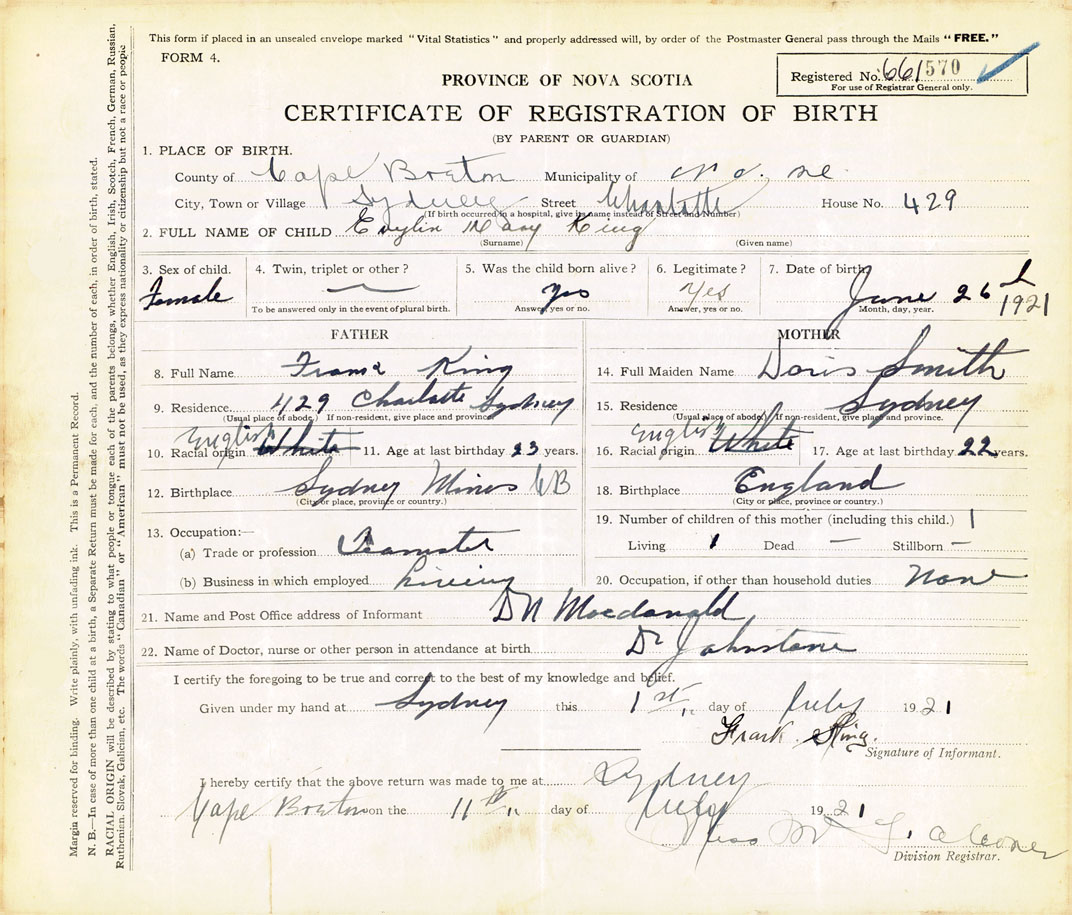 This form if placed in an unsealed envelope marked "Vital Statistics" and properly addressed will, by order of the Postmaster General pass through the Mails "FREE."
FORM 4.
Registered No. 661570
For use of Registrar General only.
PROVINCE OF NOVA SCOTIA
CERTIFICATE OF REGISTRATION OF BIRTH
(BY PARENT OR GUARDIAN)
1. PLACE OF BIRTH.
County of Cape Breton Municipality of
City, Town or Village Sydney Street Charlotte House No. 429
(If birth occurred in a hospital, give its name instead of Street and Number)
2. FULL NAME OF CHILD Evylin Mary King
(Surname) (Given name)
3. Sex of child. 4. Twin, triplet or other? 5. Was the child born alive? 6. Legitimate? 7. Date of birth
Female — Yes Yes June 26 1921
To be answered only in the event of plural birth. Answer, yes or no. Answer, yes or no. Month, day, year.
FATHER MOTHER
8. Full Name King
14. Full Maiden Name Doris Smith
9. Residence 429 Charlotte Sydney
(Usual place of abode.) If non-resident, give place and province
15. Residence Sydney
(Usual place of abode.) If non-resident, give place and province.
English
10. Racial origin White 11. Age at last birthday 23 years.
English
16. Racial origin White 17. Age at last birthday 22 years.
12. Birthplace Sydney Mines CB
(City or place, province or country.)
18. Birthplace England
(City or place, province or country.)
13. Occupation:—
(a) Trade or profession Teamster
(b) Business in which employed
19. Number of children of this mother (including this child.) 1
Living 1 Dead — Stillborn —
20. Occupation, if other than household duties None
21. Name and Post Office address of Informant DN Macdonald
22. Name of Doctor, nurse or other person in attendance at birth Dr Johnstone
I certify the foregoing to be true and correct to the best of my knowledge and belief.
Given under my hand at Sydney this 1st day of July 1921
Frank King.
Signature of Informant.
I hereby certify that the above return was made to me at Sydney
Cape Breton on the 11th day of July 1921
Miss
Division Registrar.
Margin reserved for binding. Write plainly, with unfading ink. This is a Permanent Record.
N. B.—In case of more than one child at a birth, a Separate Return must be made for each, and the number of each, in order of birth, stated.
RACIAL ORIGIN will be described by stating to what people or tongue each of the parents belongs, whether English, Irish, Scotch, French, German, Russian,
Ruthenian, Slovak, Galician, etc. The words "Canadian" or "American" must not be used, as they express nationality or citizenship but not a race or people